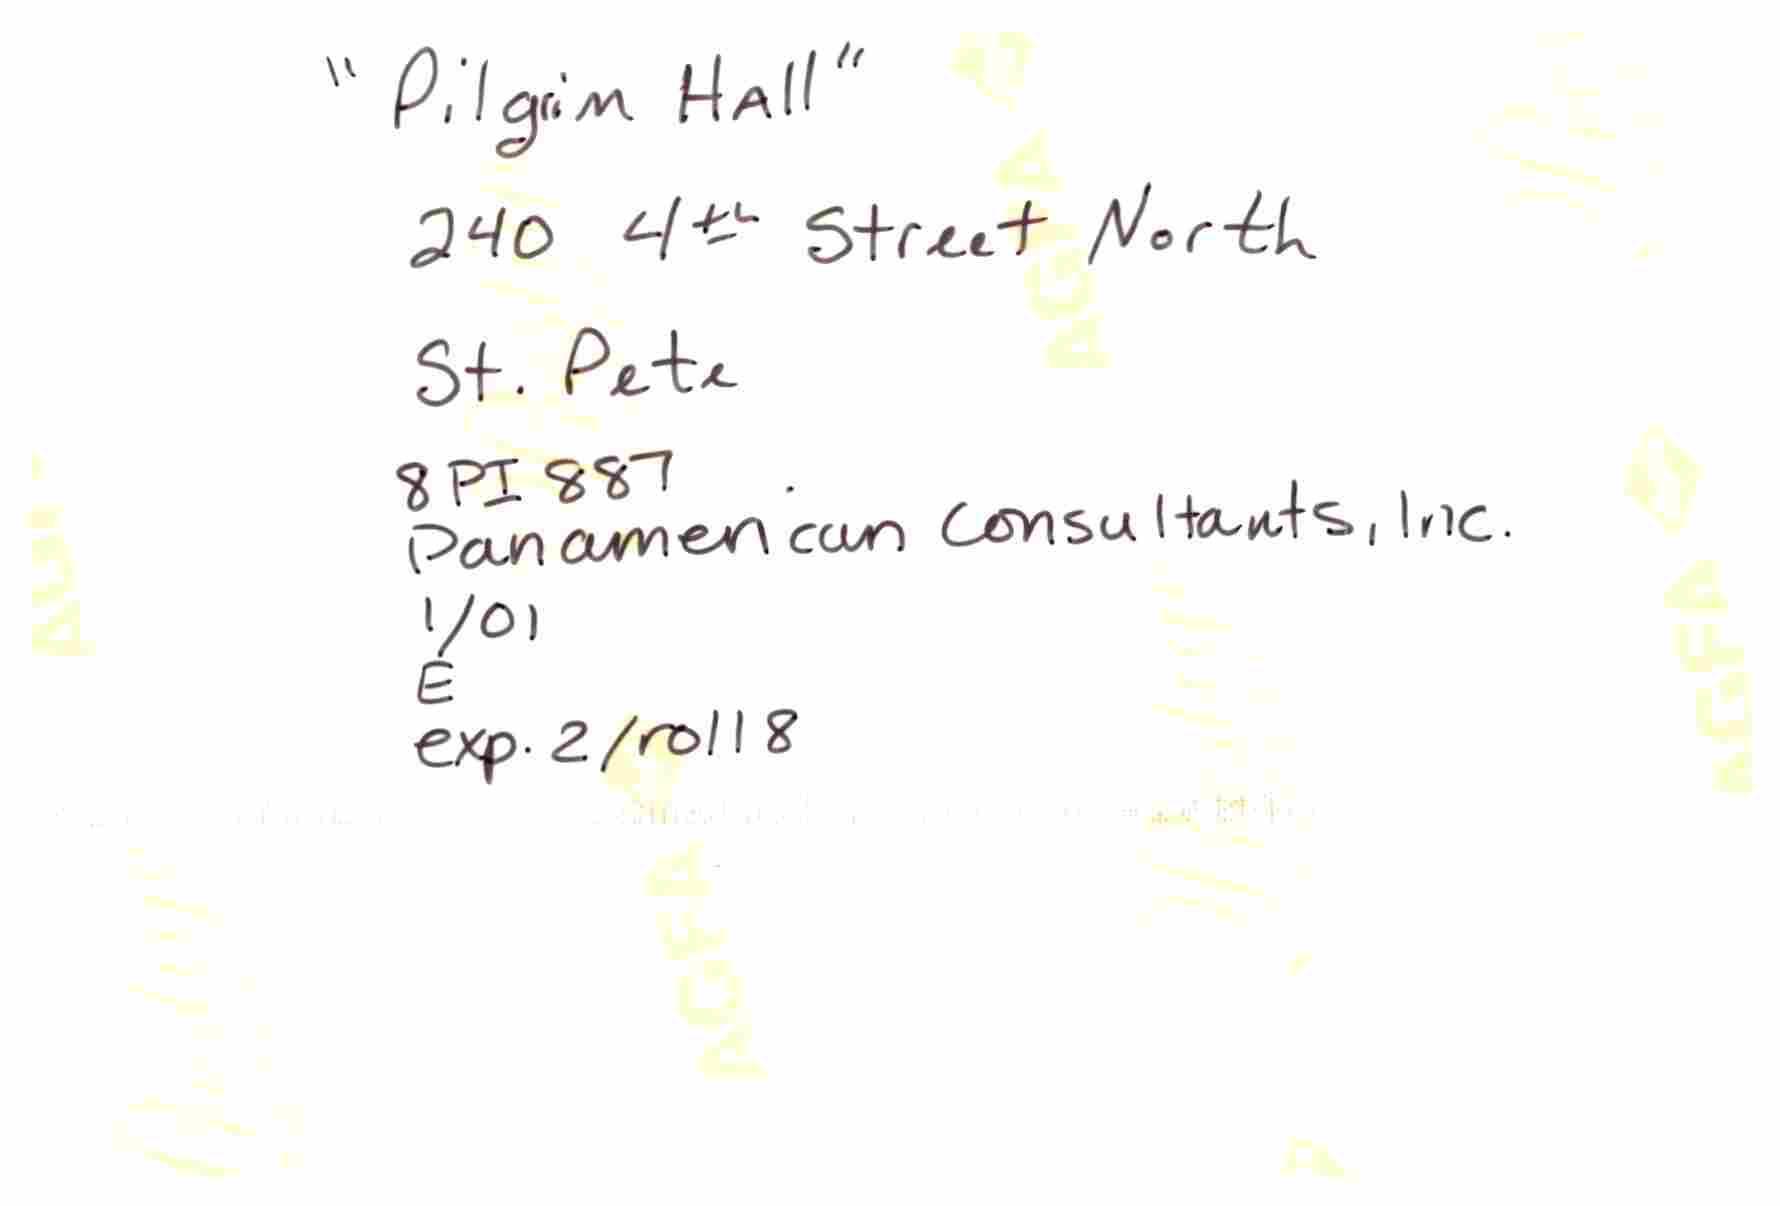 "Pilgrim Hall"
240 4th Street North
St. Pete
8PI 887
Panamerican Consultants, Inc.
1/01
E
exp. 2/roll 8
AGFA
AGFA
AGFA